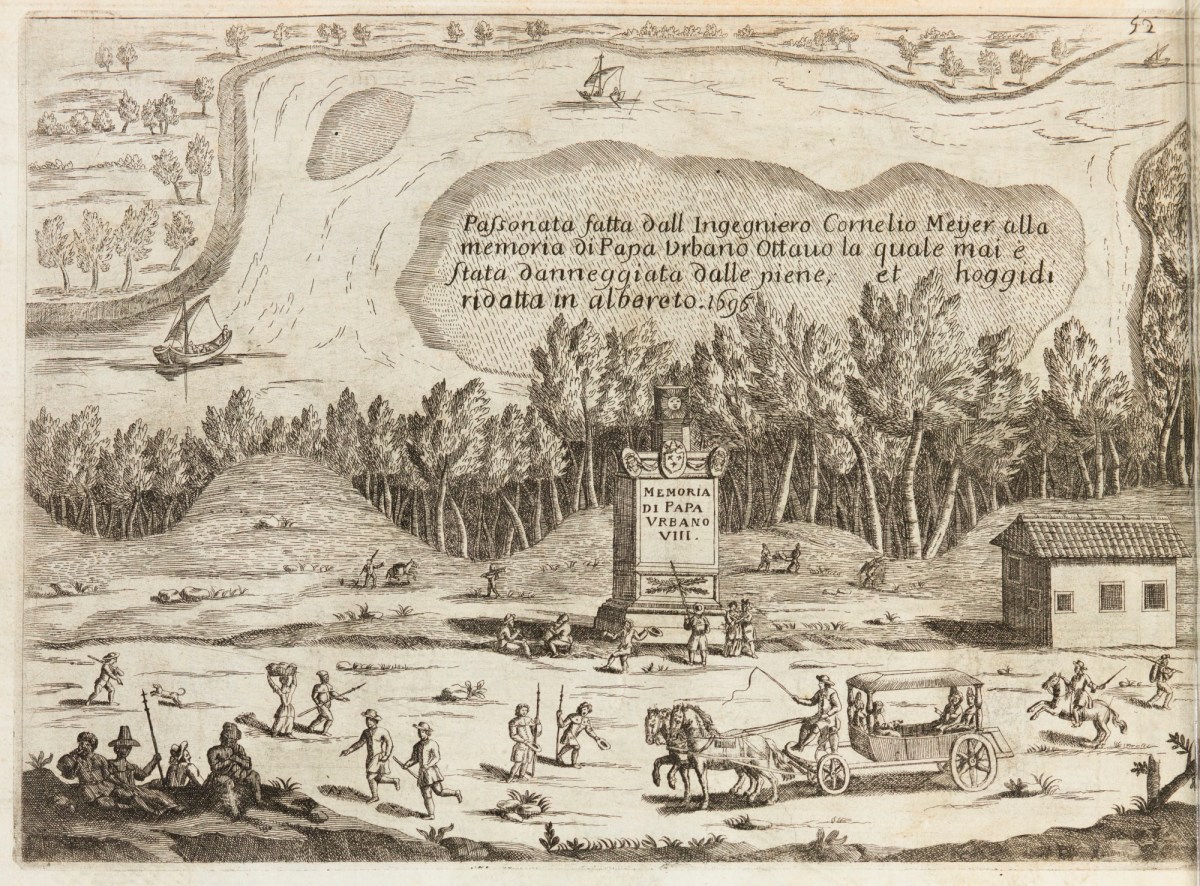 52
Paſsonata fatta dall Ingegniero Cornelio Meyer alla
memoria di Papa Vrbano Ottauo la quale mai e
ſtata danneggiata dalle piene, et hoggidi
ridotta in albereto. 1696
MEMORIA
DI PAPA
VRBANO
VIII.